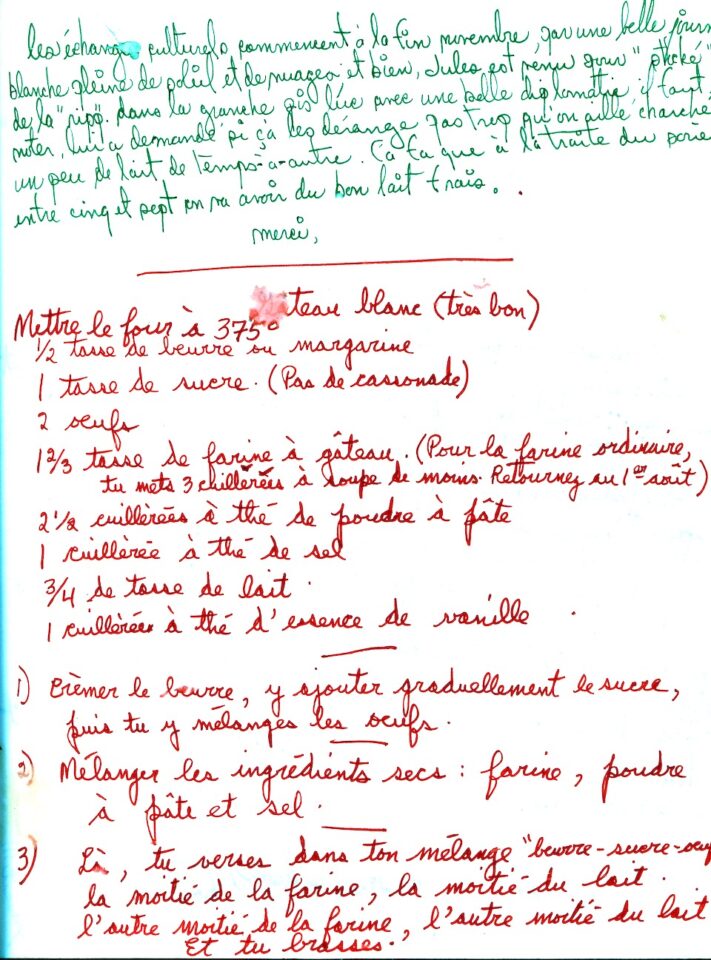 les échanges culturels commencent à la fin novembre, par une belle journ
blanche pleine de soleil et de nuages et bien, Jules est venu pour
de la dans la avec une belle diplomatie il faut
noter, lui a demandé si ça les dérange pas trop qu'on aille cherche
un peu de lait de temps-à-autre. Ça fa que à la traite du
entre cinq et sept on va avoir du bon lait frais.
merci,
âteau blanc (très bon)
Mettre le four à 375°
1/2 tasse de beurre ou margarine
1 tasse de sucre. (Pas de cassonade)
2 oeufs
1 2/3 tasse de farine à gâteau. (Pour la farine ordinaire,
tu mets 3 cuillèrées à soupe de moins. Retournez au 1er août)
2 1/2 cuillèrées à thé de poudre à pâte
1 cuillèrée à thé de sel
3/4 de tasse de lait.
1 cuillèrées à thé d'essence de vanille.
1) Crèmer le beurre, y ajouter graduellement le sucre,
puis tu y mélanges les oeufs.
2) Mélanger les ingrédients secs : farine, poudre
à pâte et sel.
3) Là, tu verses dans ton mélange "beurre-sucre-oeuf
la moitié de la farine, la moitié du lait.
l'autre moitié de la farine, l'autre moitié du lait
Et tu brasses.